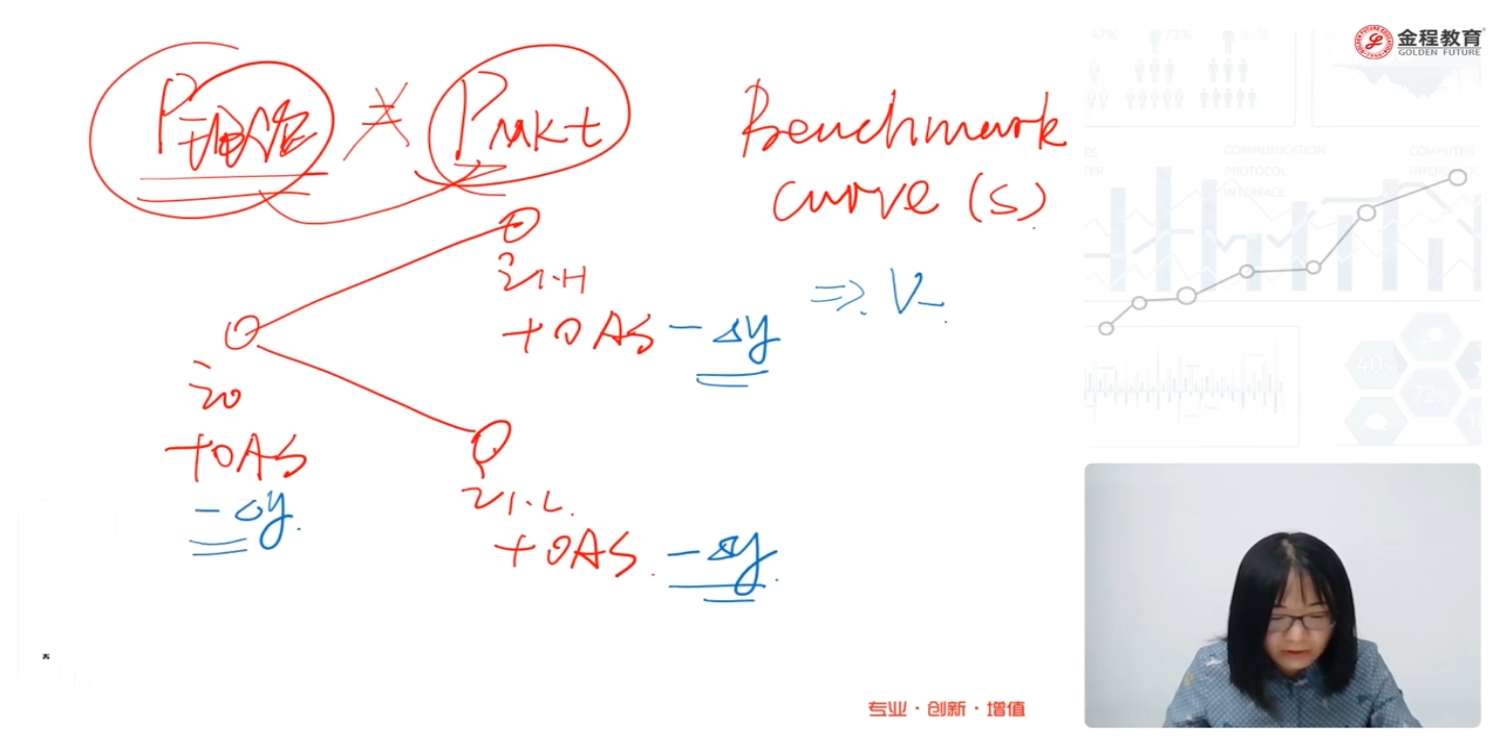 金程教育
GOLDEN FUTURE
P ≠ Pmkt
Benchmark
curve (s)
i1.H
+OAS -Δy
⇒ V-
i0
+OAS
-Δy
i1.L
+OAS -Δy
专业·创新·增值